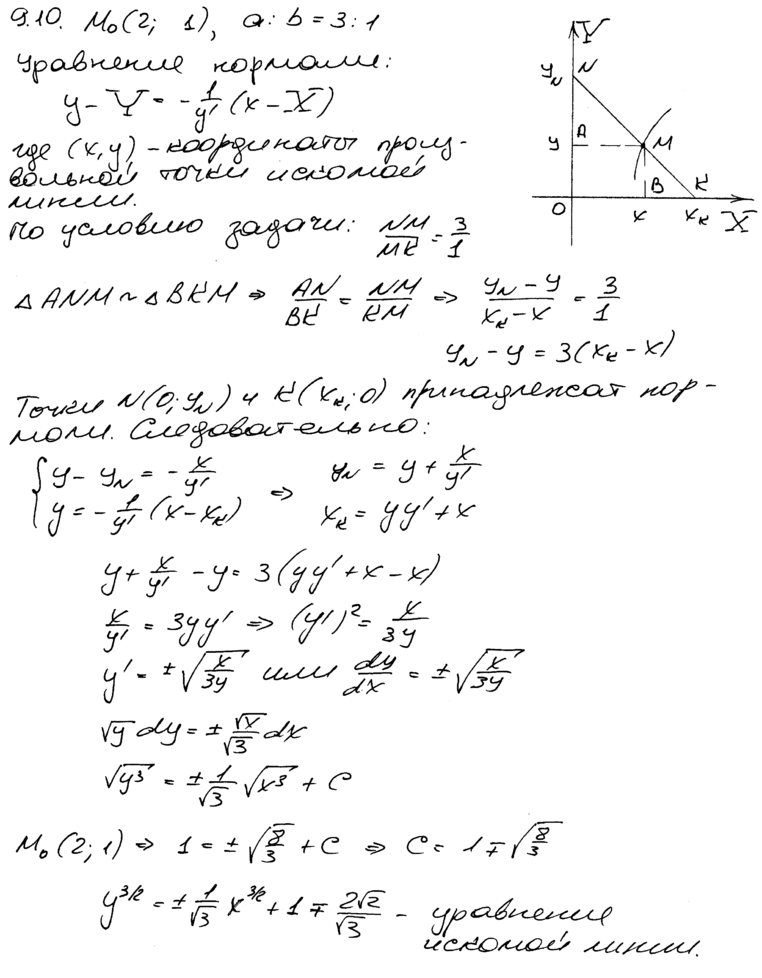 9.10. M₀(2; 1), a : b = 3 : 1
Уравнение нормали:
y − Y = −1/y′ (x − X)
где (x, y) – координаты произ-
вольной точки искомой
линии.
По условию задачи: NM/MK = 3/1
Y
y_N N
y A M
B K
O x x_K X
△ANM ~ △BKM ⇒ AN/BK = NM/KM ⇒ (y_N − y)/(x_K − x) = 3/1
y_N − y = 3(x_K − x)
Точки N(0; y_N) и K(x_K; 0) принадлежат нор-
мали. Следовательно:
{ y − y_N = −x/y′ ⇒ y_N = y + x/y′
y = −1/y′ (x − x_K) x_K = yy′ + x
y + x/y′ − y = 3(yy′ + x − x)
x/y′ = 3yy′ ⇒ (y′)² = x/3y
y′ = ±√(x/3y) или dy/dx = ±√(x/3y)
√y dy = ± √x/√3 dx
√y³ = ± 1/√3 √x³ + C
M₀(2; 1) ⇒ 1 = ±√(8/3) + C ⇒ C = 1 ∓ √(8/3)
y^(3/2) = ± 1/√3 x^(3/2) + 1 ∓ 2√2/√3 – уравнение
искомой линии.